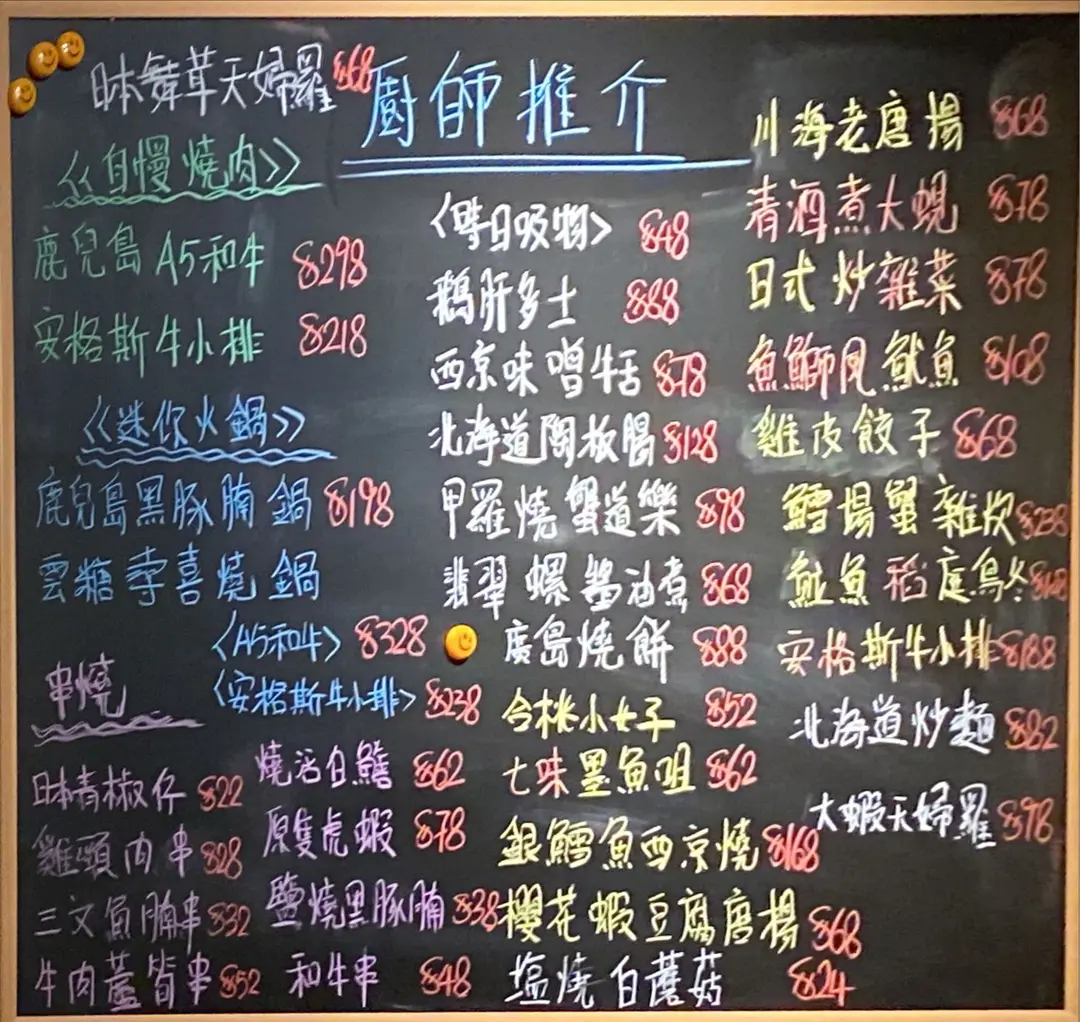 日本舞茸天婦羅 $68
廚師推介
《自慢燒肉》
鹿兒島A5和牛 $298
安格斯牛小排 $218
《迷你火鍋》
鹿兒島黑豚腩鍋 $198
雲糖壽喜燒鍋
〈A5和牛〉 $328
〈安格斯牛小排〉 $238
串燒
日本青椒仔 $22
雞頸肉串 $28
三文魚腩串 $32
牛肉蘆筍串 $52
燒活白鱔 $62
原隻虎蝦 $78
鹽燒黑豚腩 $38
和牛串 $48
〈是日吸物〉 $48
鵝肝多士 $88
西京味噌牛舌 $78
北海道陶板腸 $128
甲羅燒蟹道樂 $98
翡翠螺醬油煮 $68
廣島燒餅 $88
合桃小女子 $52
七味墨魚咀 $62
銀鱈魚西京燒 $168
櫻花蝦豆腐唐揚 $68
塩燒白蘑菇 $24
川海老唐揚 $68
清酒煮大蜆 $78
日式炒雜菜 $78
魚鰤夙魷魚 $108
雞皮餃子 $68
鱈場蟹雜炊 $238
魷魚稻庭烏冬
安格斯牛小排 $188
北海道炒麵 $82
大蝦天婦羅 $98